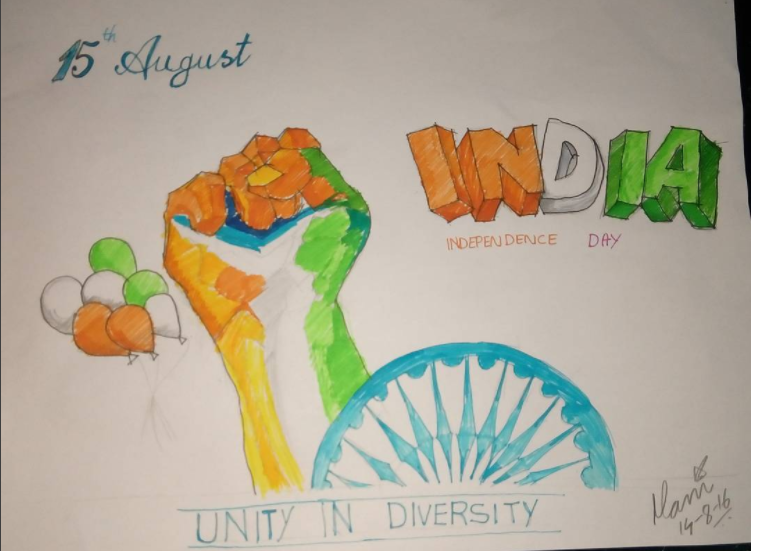 15th August
INDIA
INDEPENDENCE DAY
UNITY IN DIVERSITY
Mani
14-8-16